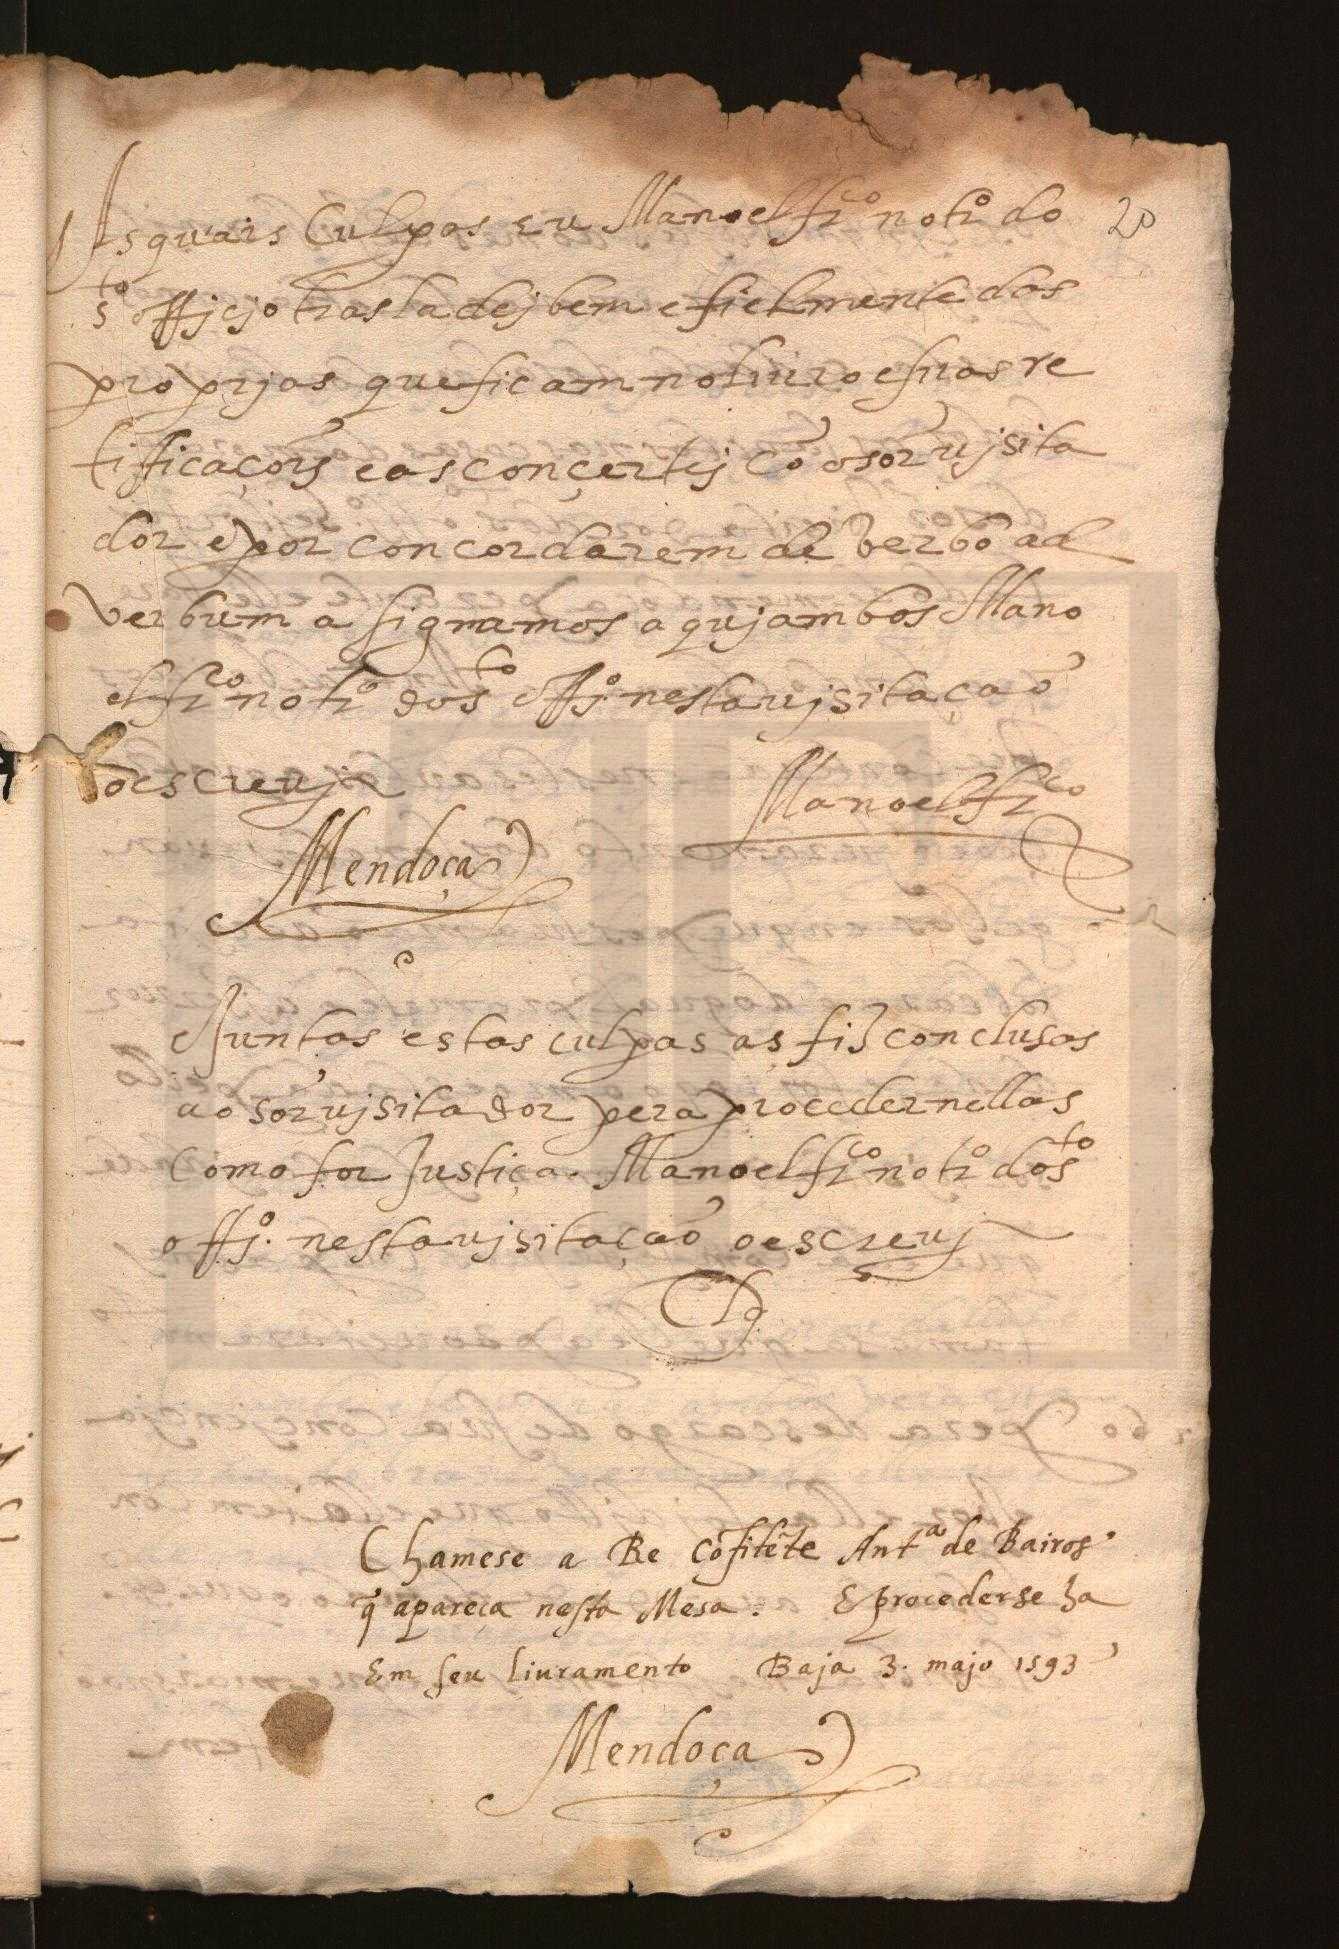 As quais Culpas eu Manoel frco notro do 20
sto officjo trasladej bem e fielmente das
proprjas que ficam no liuro e suas re
tificaçoĩs e as conçertej cõ o sor vjsita
dor e por concordarem de verbo ad
verbum asignamos aquj ambos Mano
el frco notro do sto offjo. nesta vjsitaçaõ
o escreuj
Manoel frco
Mendoça
Juntas estas culpas as fiz conclusas
ao sor vjsitador pera proceder nellas
Como for Justiça. Manoel frco notro do sto
offjo. nesta vjsitaçaõ o escreuj
Clo.
Chamese a Re Cõfitẽte Anta de Bairos
q̃ apareça nesta Mesa. E procederse ha
Em seu liuramento Baja 3. majo 1593
Mendoça